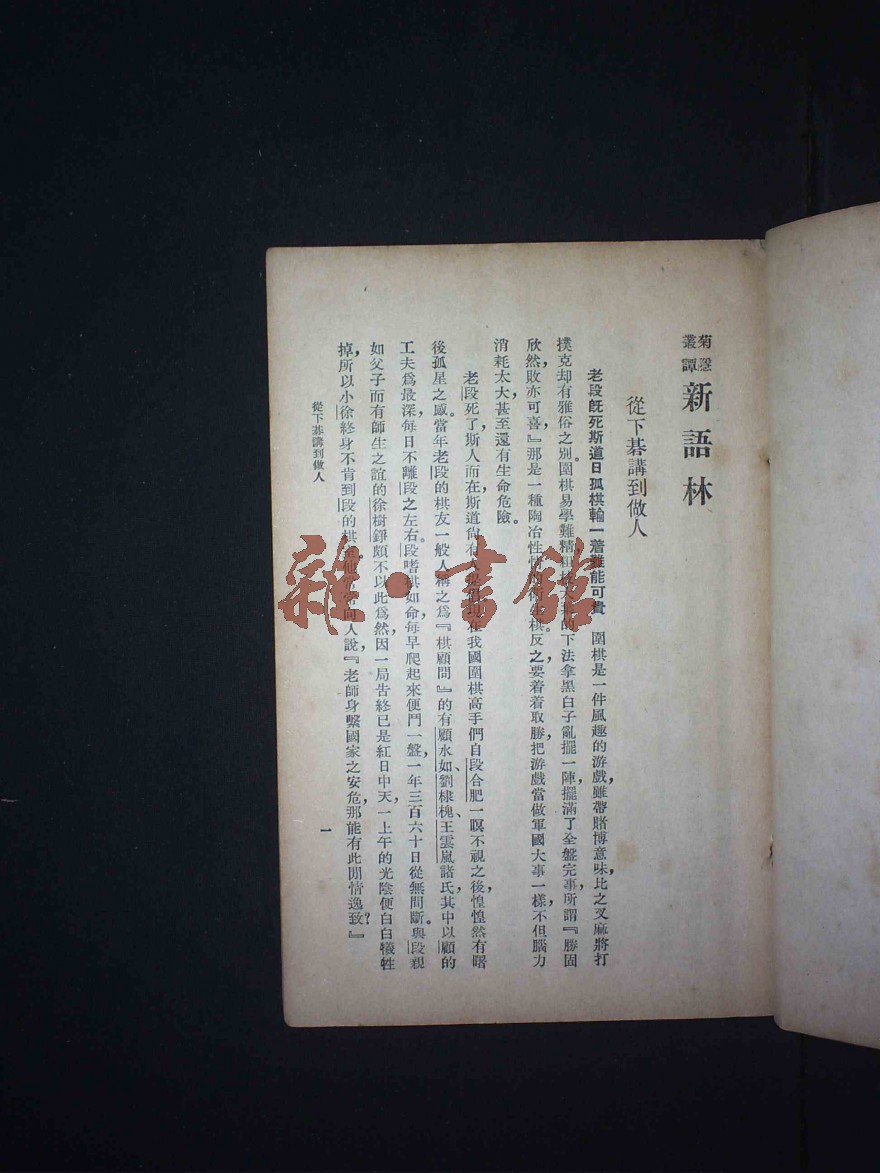 菊隱叢譚 新語林
從下棊講到做人
老段既死斯道日孤棋輸一着難能可貴 圍棋是一件風趣的游戲，雖帶賭博意味，比之叉麻將打
撲克却有雅俗之別。圍棋易學難精，的下法拿黑白子亂擺一陣，擺滿了全盤完事，所謂『勝固
欣然，敗亦可喜』那是一種陶冶性情的棋。反之要着着取勝，把游戲當做軍國大事一樣，不但腦力
消耗太大，甚至還有生命危險。
老段死了，斯人而在斯道尙有在我國圍棋高手們自段合肥一瞑不視之後，惶惶然有曙
後孤星之感。當年老段的棋友一般人稱之爲『棋顧問』的有顧水如、劉棣槐、王雲嵐諸氏，其中以顧的
工夫爲最深，每日不離段之左右。段嗜棋如命，每早爬起來便鬥一盤，一年三百六十日從無間斷。與段親
如父子而有師生之誼的徐樹錚頗不以此爲然，因一局告終已是紅日中天，一上午的光陰便白白犧牲
掉，所以小徐終身不肯到段的棋他常常向人說，『老師身繫國家之安危，那能有此閒情逸致？』
從下棊講到做人
一
雜·書館